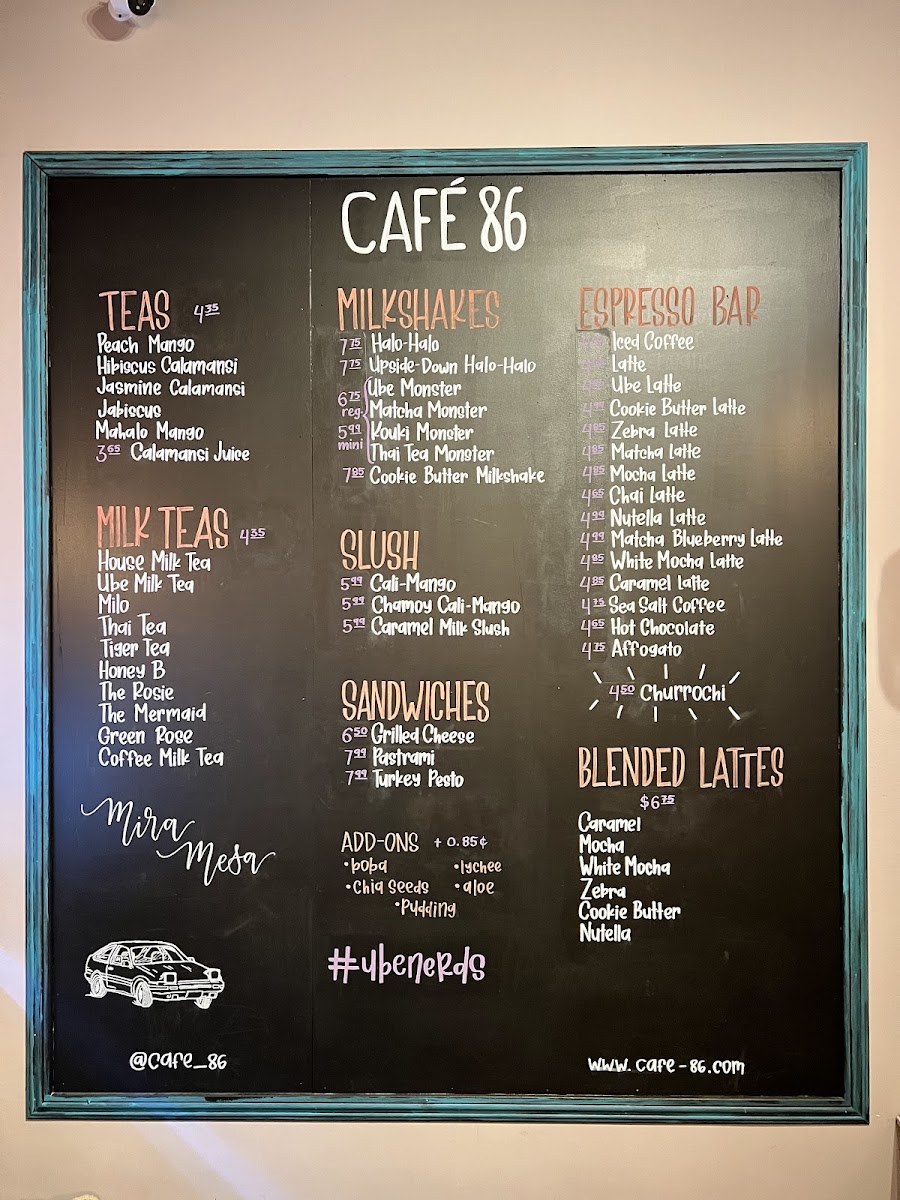 CAFÉ 86
TEAS 4.35
Peach Mango
Hibiscus Calamansi
Jasmine Calamansi
Jabiscus
Mahalo Mango
3.65 Calamansi Juice
MILK TEAS 4.35
House Milk Tea
Ube Milk Tea
Milo
Thai Tea
Tiger Tea
Honey B
The Rosie
The Mermaid
Green Rose
Coffee Milk Tea
Mira
Mesa
@cafe_86
MILKSHAKES
7.75 Halo-Halo
7.75 Upside-Down Halo-Halo
6.75 reg
5.99 mini
Ube Monster
Matcha Monster
Kouki Monster
Thai Tea Monster
7.85 Cookie Butter Milkshake
SLUSH
5.99 Cali-Mango
5.99 Chamoy Cali-Mango
5.99 Caramel Milk Slush
SANDWICHES
6.50 Grilled Cheese
7.99 Pastrami
7.99 Turkey Pesto
ADD-ONS + 0.85¢
•boba •lychee
•Chia Seeds •aloe
•Pudding
#ubenerds
ESPRESSO BAR
Iced Coffee
Latte
Ube Latte
4.99 Cookie Butter Latte
4.85 Zebra Latte
4.85 Matcha Latte
4.85 Mocha Latte
4.65 Chai Latte
4.99 Nutella Latte
4.99 Matcha Blueberry Latte
4.85 White Mocha Latte
4.85 Caramel Latte
4.75 Sea Salt Coffee
4.65 Hot Chocolate
4.75 Affogato
4.50 Churrochi
BLENDED LATTES
$6.75
Caramel
Mocha
White Mocha
Zebra
Cookie Butter
Nutella
www.cafe-86.com